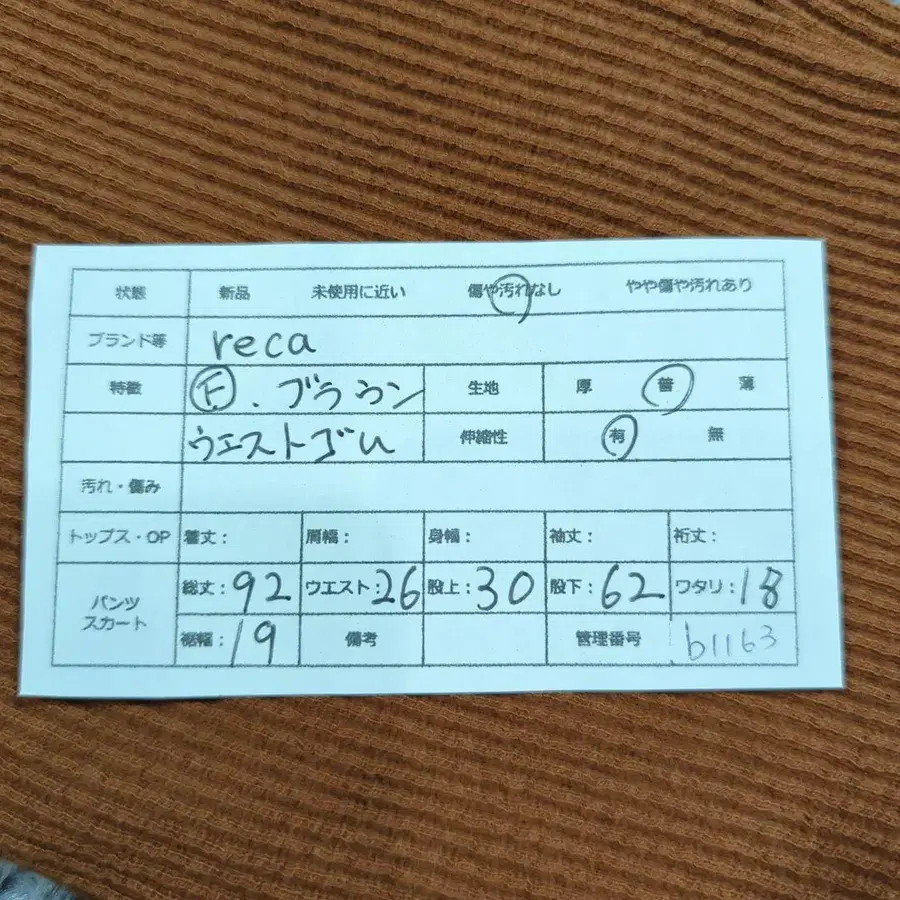 状態 新品 未使用に近い 傷や汚れなし やや傷や汚れあり
ブランド等 reca
特徴 F. ブラウン 生地 厚 普 薄
ウエストゴム 伸縮性 有 無
汚れ・傷み
トップス・OP 着丈: 肩幅: 身幅: 袖丈: 裄丈:
パンツ スカート 総丈: 92 ウエスト: 26 股上: 30 股下: 62 ワタリ: 18
裾幅: 19 備考 管理番号 b1163